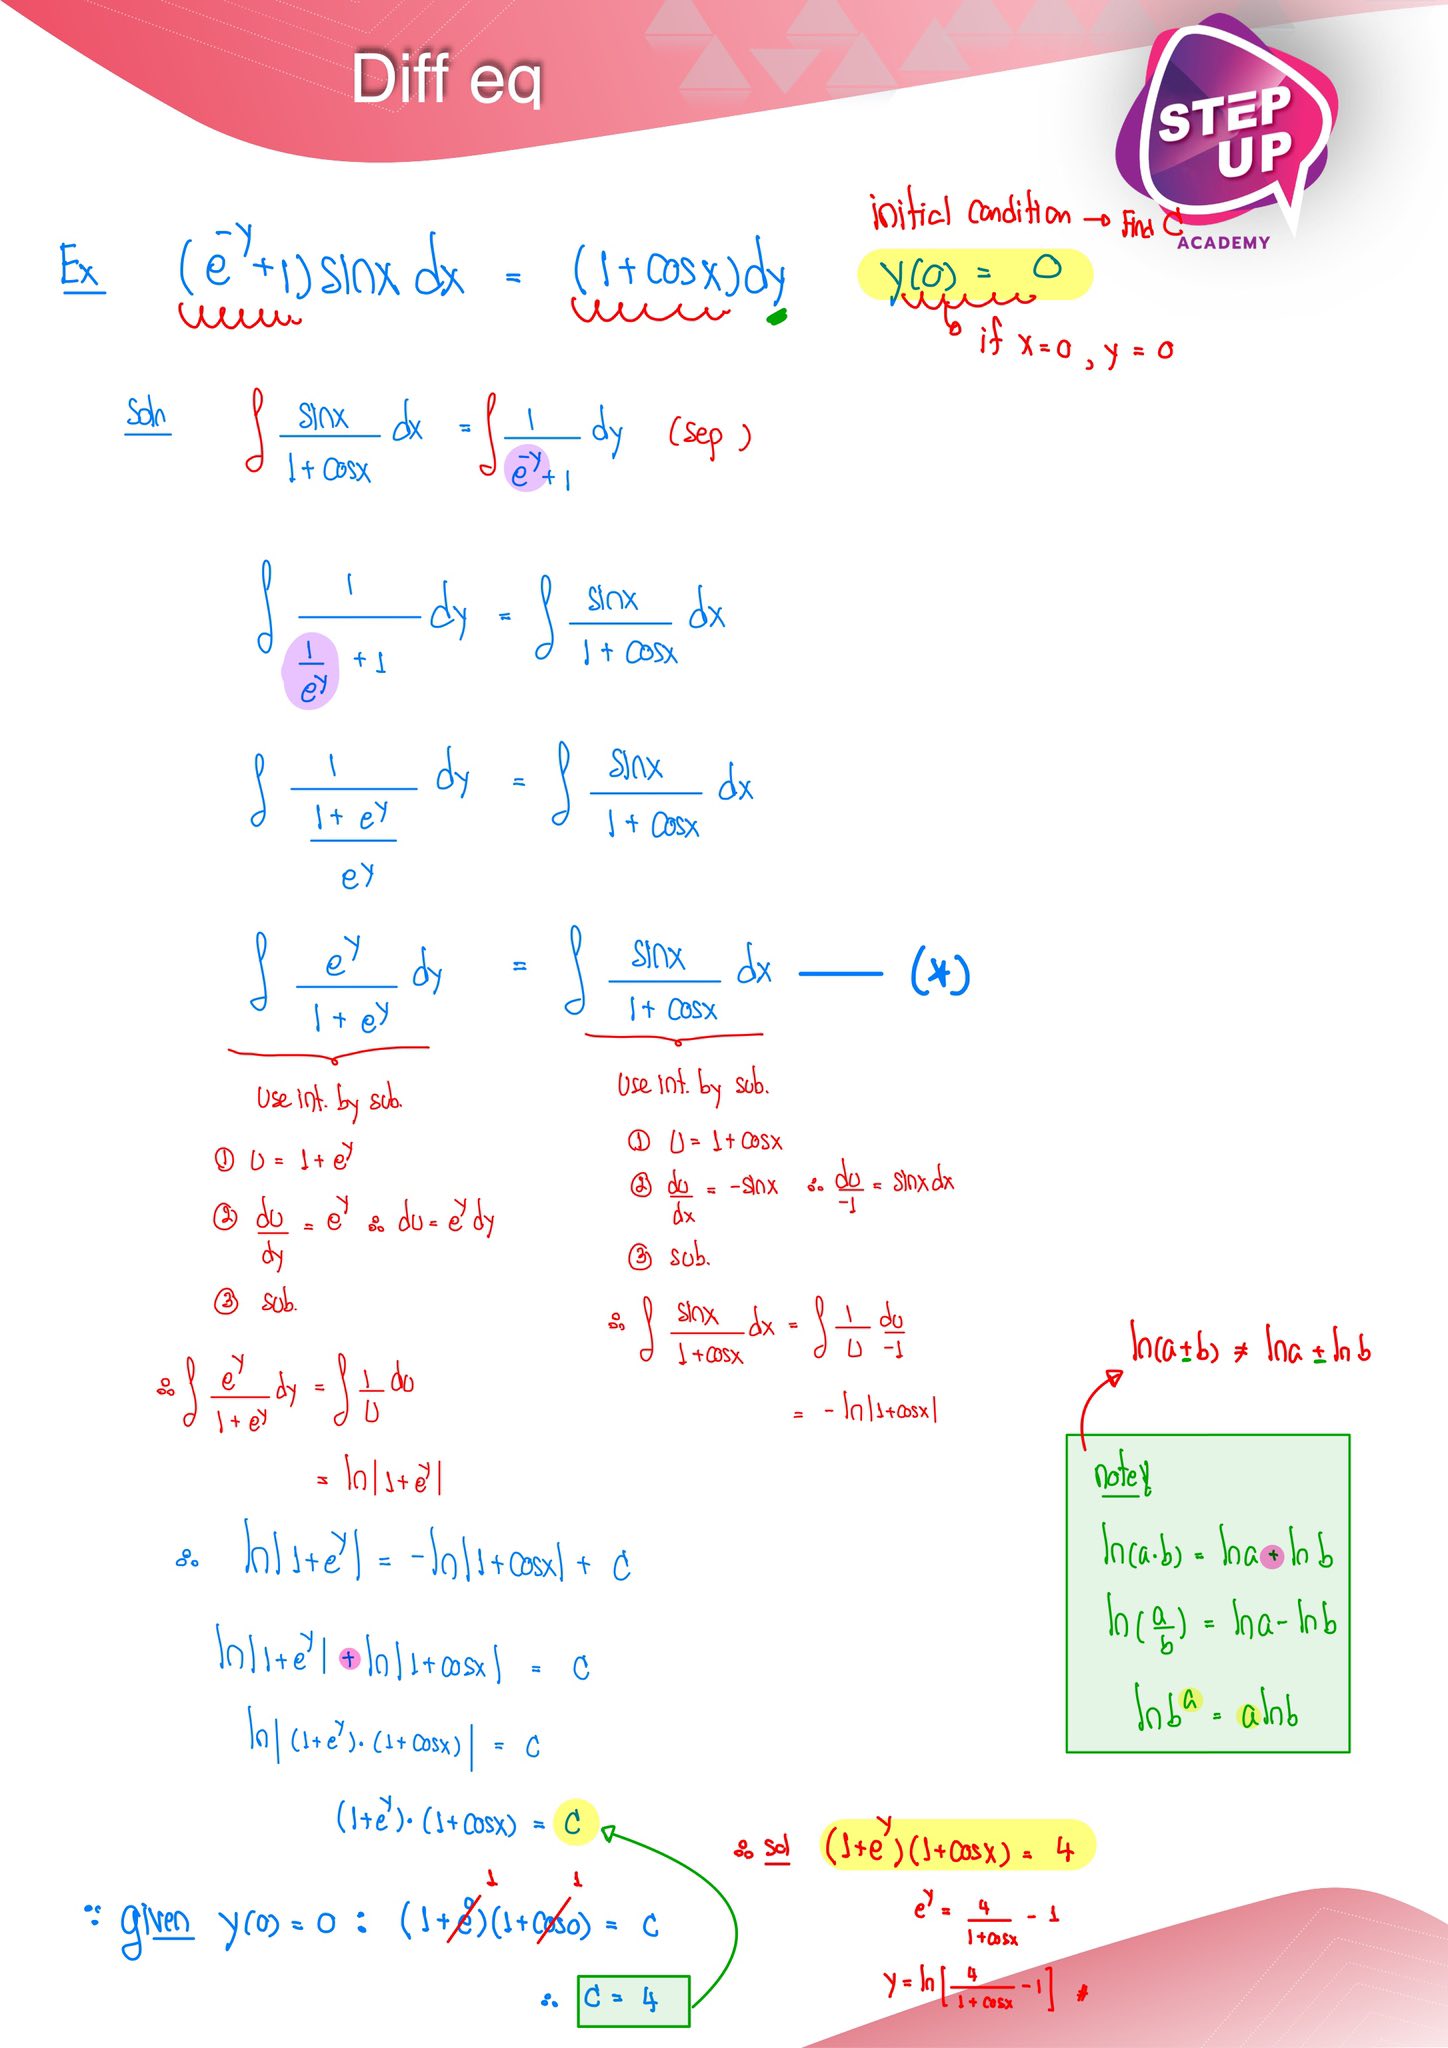 Diff eq
STEP UP
ACADEMY
initial condition → Find C
Ex (e^-y + 1) sinx dx = (1 + cosx) dy
y(0) = 0
if x = 0, y = 0
Soln ∫ sinx / (1 + cosx) dx = ∫ 1 / (e^-y + 1) dy (sep)
∫ 1 / (1/e^y + 1) dy = ∫ sinx / (1 + cosx) dx
∫ 1 / ((1 + e^y) / e^y) dy = ∫ sinx / (1 + cosx) dx
∫ e^y / (1 + e^y) dy = ∫ sinx / (1 + cosx) dx —— (*)
Use int. by sub.
① U = 1 + e^y
② du/dy = e^y ∴ du = e^y dy
③ sub.
∴ ∫ e^y / (1 + e^y) dy = ∫ 1/U du
= ln|1 + e^y|
Use int. by sub.
① U = 1 + cosx
② du/dx = -sinx ∴ du/-1 = sinx dx
③ sub.
∴ ∫ sinx / (1 + cosx) dx = ∫ 1/U du/-1
= - ln|1 + cosx|
ln(a ± b) ≠ lna ± ln b
note
ln(a·b) = lna + ln b
ln(a/b) = lna - ln b
ln b^a = a ln b
∴ ln|1 + e^y| = -ln|1 + cosx| + C
ln|1 + e^y| + ln|1 + cosx| = C
ln|(1 + e^y)·(1 + cosx)| = C
(1 + e^y)·(1 + cosx) = C
1 1
∵ given y(0) = 0 : (1 + e^0)(1 + cos0) = C
∴ C = 4
∴ sol (1 + e^y)(1 + cosx) = 4
e^y = 4 / (1 + cosx) - 1
y = ln[4 / (1 + cosx) - 1] #